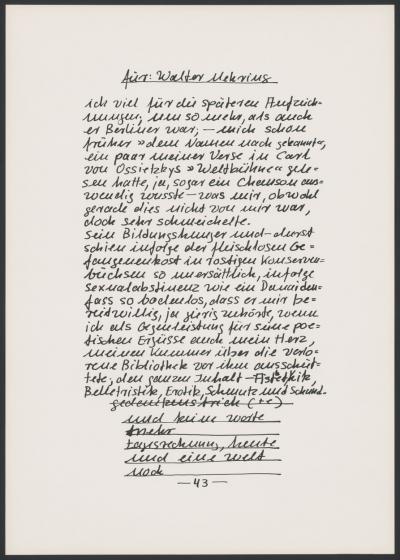 für: Walter Mehring
ich viel für die späteren Aufzeich-
nungen, um so mehr, als auch
er Berliner war, — mich schon
früher »dem Namen nach gekannt«,
ein paar meiner Verse in Carl
von Ossietzkys »Weltbühne« gele-
sen hatte, ja, sogar ein Chanson aus-
wendig wusste — was mir, obwohl
gerade dies nicht von mir war,
doch sehr schmeichelte.
Sein Bildungshunger und -durst
schien infolge der fleischlosen Ge-
fangenenkost in rostigen Konserven-
büchsen so unersättlich, infolge
Sexualabstinenz wie ein Danaiden-
fass so bodenlos, dass er mir be-
reitwillig, ja gierig zuhörte, wenn
ich als Gegenleistung für seine poe-
tischen Ergüsse auch mein Herz,
meinen Kummer über die verlo-
rene Bibliothek vor ihm ausschüt-
tete, den ganzen Inhalt — Ästhetik,
Belletristik, Erotik, Schmutz und Schund.
gedankenstrich (+-)
und keine worte
mehr
tagesrechnung, heute
und eine welt
noch
— 43 —